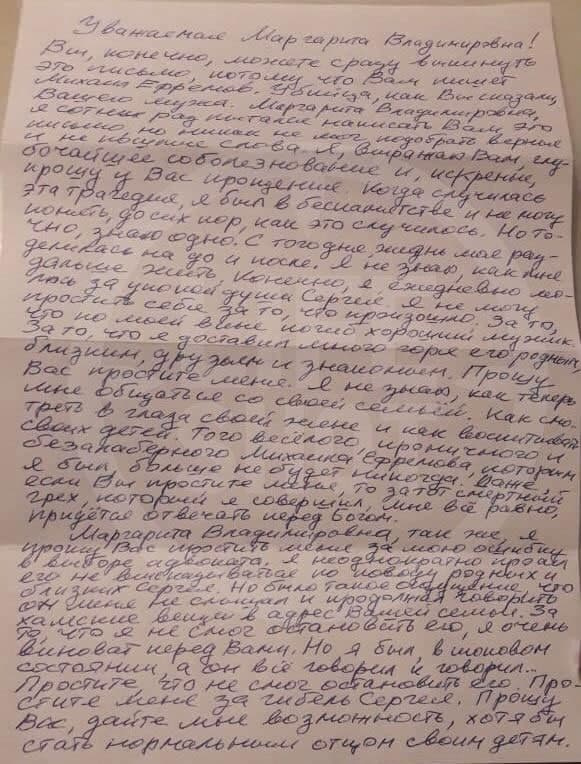 Уважаемая Маргарита Владимировна!
Вы, конечно, можете сразу выкинуть
это письмо, потому что Вам пишет
Михаил Ефремов. Убийца, как Вы сказали,
Вашего мужа. Маргарита Владимировна,
я сотни раз пытался написать Вам это
письмо, но никак не мог подобрать верные
и не пошлые слова. Я, выражаю Вам, глу-
бочайшее соболезнование и, искренне,
прошу у Вас прощение. Когда случилась
эта трагедия, я был в беспамятстве и не могу
понять, до сих пор, как это случилось. Но то-
чно, знаю одно. С того дня, жизнь моя раз-
делилась на до и после. Я не знаю, как мне
дальше жить. Конечно, я ежедневно мо-
люсь за упокой души Сергея. Я не могу
простить себе за то, что произошло. За то,
что по моей вине погиб хороший мужик.
За то, что я доставил много горя его родным,
близким, друзьям и знакомым. Прошу
Вас простите меня. Я не знаю, как теперь
мне общаться со своей семьёй. Как смо-
треть в глаза своей жене и как воспитывать
своих детей. Того весёлого, ироничного и
безалаберного Михаила Ефремова, которым
я был, больше не будет никогда. Даже
если Вы простите меня, то за этот смертный
грех, который я совершил, мне всё равно,
придётся отвечать перед Богом.
Маргарита Владимировна, так же, я
прошу Вас простить меня за мою ошибку
в выборе адвоката. Я неоднократно просил
его не высказываться по поводу родных и
близких Сергея. Но было такое ощущение, что
он меня не слышал и продолжал говорить
хамские вещи в адрес Вашей семьи. За
то, что я не смог остановить его, я очень
виноват перед Вами. Но я был, в шоковом
состоянии, а он всё говорил и говорил...
Простите, что не смог остановить его. Про-
стите меня за гибель Сергея. Прошу
Вас, дайте мне возможность, хотя бы
стать нормальным отцом своим детям.